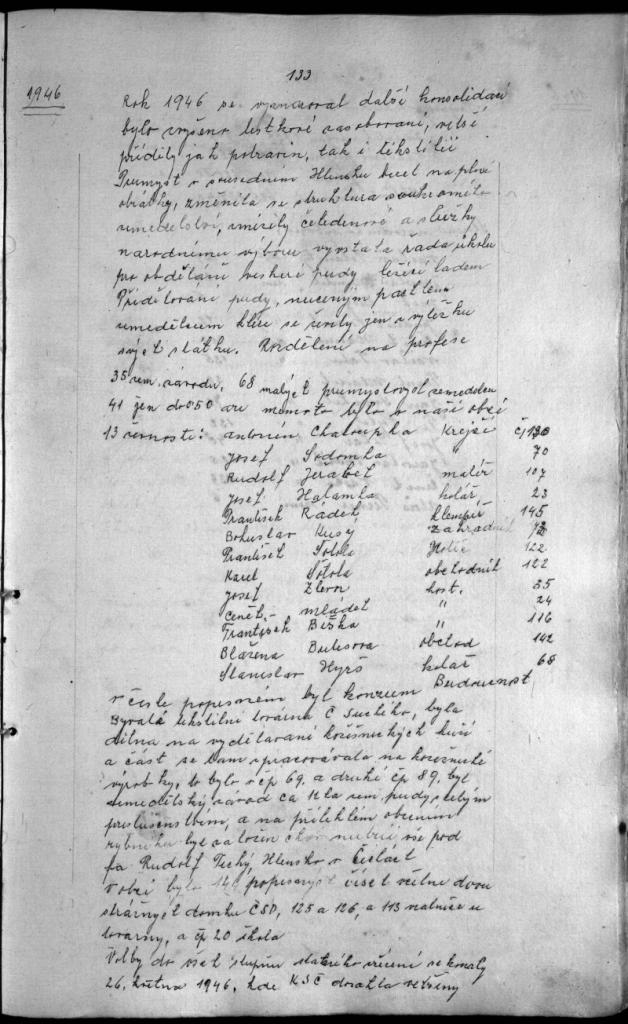 133
1946
Rok 1946 se vyznačoval další konsolidací
bylo zvýšeno lístkové zásobování, větší
příděly jak potravin, tak i textilií
Průmysl v sousedním Hlinsku běžel na plné
obrátky, změnila se struktura soukromého
zemědělství, zmizely čeledínové a služky
národnímu výboru vyvstala řada úkolů
pro obdělání veškeré půdy ležící ladem
Přidělování půdy, nuceným
se jen z výtěžku
statku. Rozdělení na profese
35 zem. závodů, 68 malých
41 jen do 050 are mimoto bylo v naší obci
13 živností: Antonín Chaloupka Krejčí čp 130
Josef Sodomka " 70
Rudolf Jeřábek malíř 107
Josef Halamka kolář 23
František Rádek klempíř 145
Bohuslav Kusý Zahradník
František Sotola Holič 122
Karel Sotola obchodník 122
Josef Zlesa host. 35
Čeněk Mládek " 24
František Beška " 116
Blažena Bulisova obchod 142
Stanislav Hyrš kolář 68
v čísle popisném byl konzum Budoucnost
Bývalá textilní továrna Č Suchého, byla
dílna na vydělávání kožešnických kůží
a část se tam zpracovávala na kožešnické
výrobky, to bylo v čp 69. a druhé čp 89, byl
zemědělský závod ca 11 ha zem. půdy s celým
příslušenstvím, a na přilehlém obecním
rybníku byl založen chov nutrií vše pod
fa Rudolf Tichý, Hlinsko v Čechách
V obci bylo 146 popisných čísel včetně dvou
strážných domků ČSD, 125 a 126, a 113 vrátnice u
továrny, a čp 20 škola
Volby do všech stupňů státního zřízení se konaly
26. května 1946, kde KSČ dosáhla většiny